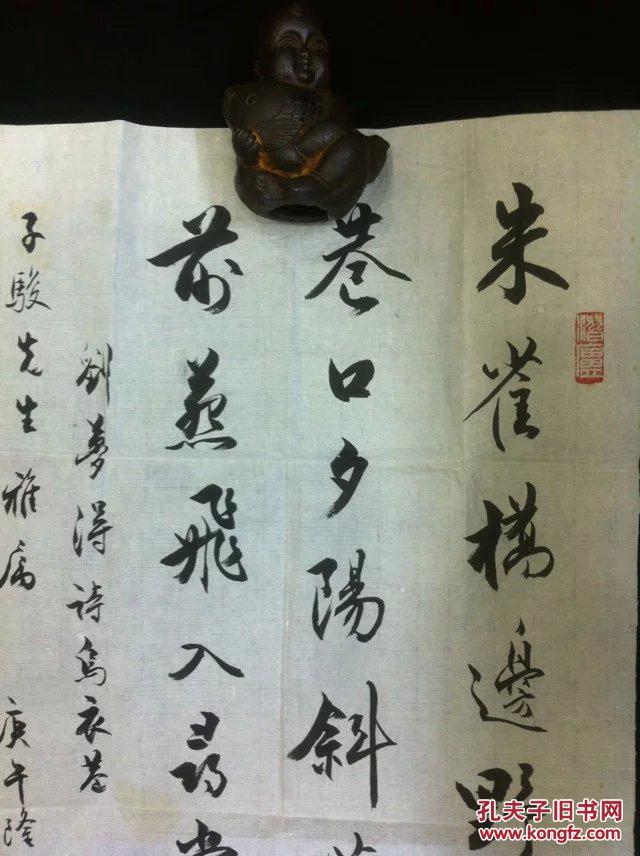 朱雀橋邊野
巷口夕陽斜
前燕飛入尋常
劉夢得詩烏衣巷
子駿先生雅屬 庚午隆
孔夫子旧书网
www.kongfz.com